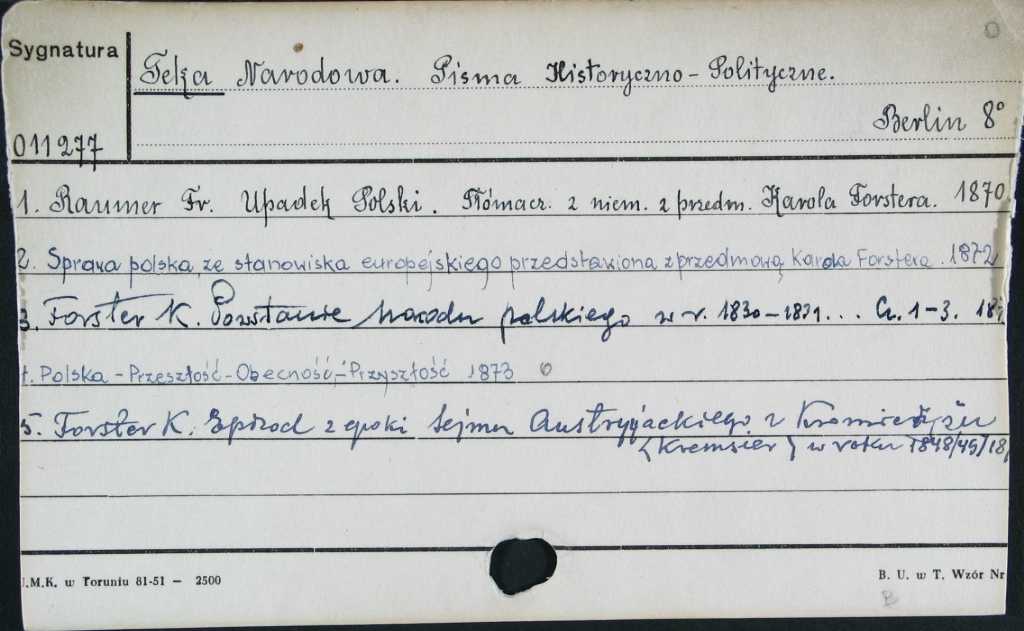 Sygnatura
Teka Narodowa. Pisma Historyczno-Polityczne.
Berlin 8°
011277
1. Raumer Fr. Upadek Polski. Tłómacz. z niem. z przedm. Karola Forstera. 1870
2. Sprawa polska ze stanowiska europejskiego przedstawiona z przedmową Karola Forstera. 1872
3. Forster K. Powstanie narodu polskiego w r. 1830-1831... Cz. 1-3.
4. Polska - Przeszłość - Obecność - Przyszłość 1873
5. Forster K. Epizod z epoki Sejmu Austryjackiego z
(Kremsier) w roku 1848/49
U.M.K. w Toruniu 81-51 — 2500
B. U. w T. Wzór Nr
B